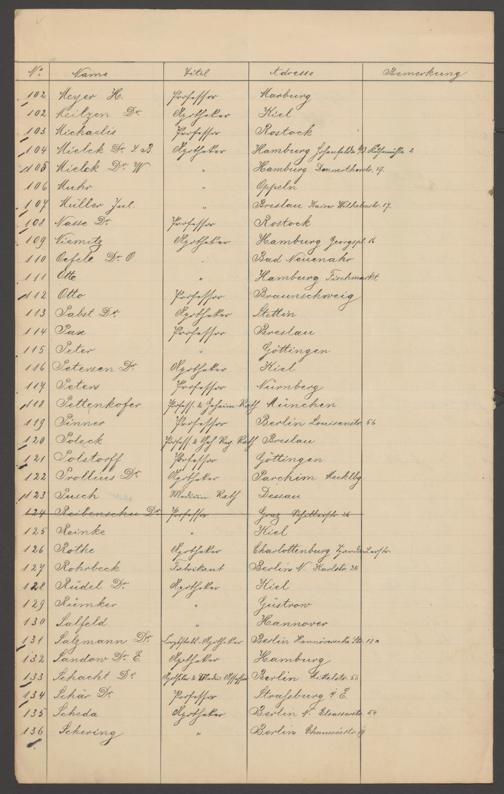 No. Name Titel Adresse Bemerkung
102 Meyer H. Professor Marburg
102 Neitzen Dr. Apotheker Kiel
103 Michaelis Professor Rostock
104 Mielck Dr. Apotheker Hamburg
105 Mielck Dr. W " Hamburg Dammthorstr. 19.
106 Muhr " Oppeln
107 Müller Jul. " Breslau Kaiser Wilhelmstr. 17.
108 Nasse Dr. Professor Rostock
109 Niemitz Apotheker Hamburg Georgspl. 16
110 Oefele Dr. O " Bad Neuenahr
111 Otte " Hamburg Fischmarkt
112 Otto Professor Braunschweig
113 Pabst Dr. Apotheker Stettin
114 Pax Professor Breslau
115 Peter " Göttingen
116 Petersen Dr. Apotheker Kiel
117 Peters Professor Nürnberg
118 Pettenkofer Profess. & Geheim Rath München
119 Pinner Professor Berlin Louisenstr 56
120 Poleck Profess & Geh Reg. Rath Breslau
121 Polstorff Professor Göttingen
122 Prollius Dr. Apotheker Parchim Mecklbg
123 Pusch Medicin. Rath Dessau
124 Reibenschu Dr. Professor Graz
125 Reinke " Kiel
126 Rothe Apotheker Charlottenburg
127 Rohrbeck Fabrikant Berlin N. Karlstr. 24
128 Rüdel Dr. Apotheker Kiel
129 Rümker " Güstrow
130 Salfeld " Hannover
131 Salzmann Dr. Apotheker Berlin
132 Sandow Dr. E. Apotheker Hamburg
133 Schacht Dr. Apotheker & Medic. Assessor Berlin
134 Schär Dr. Professor Strassburg i. E.
135 Scheda Apotheker Berlin N. Elsasserstr. 54
136 Schering " Berlin Chausseestr. 19